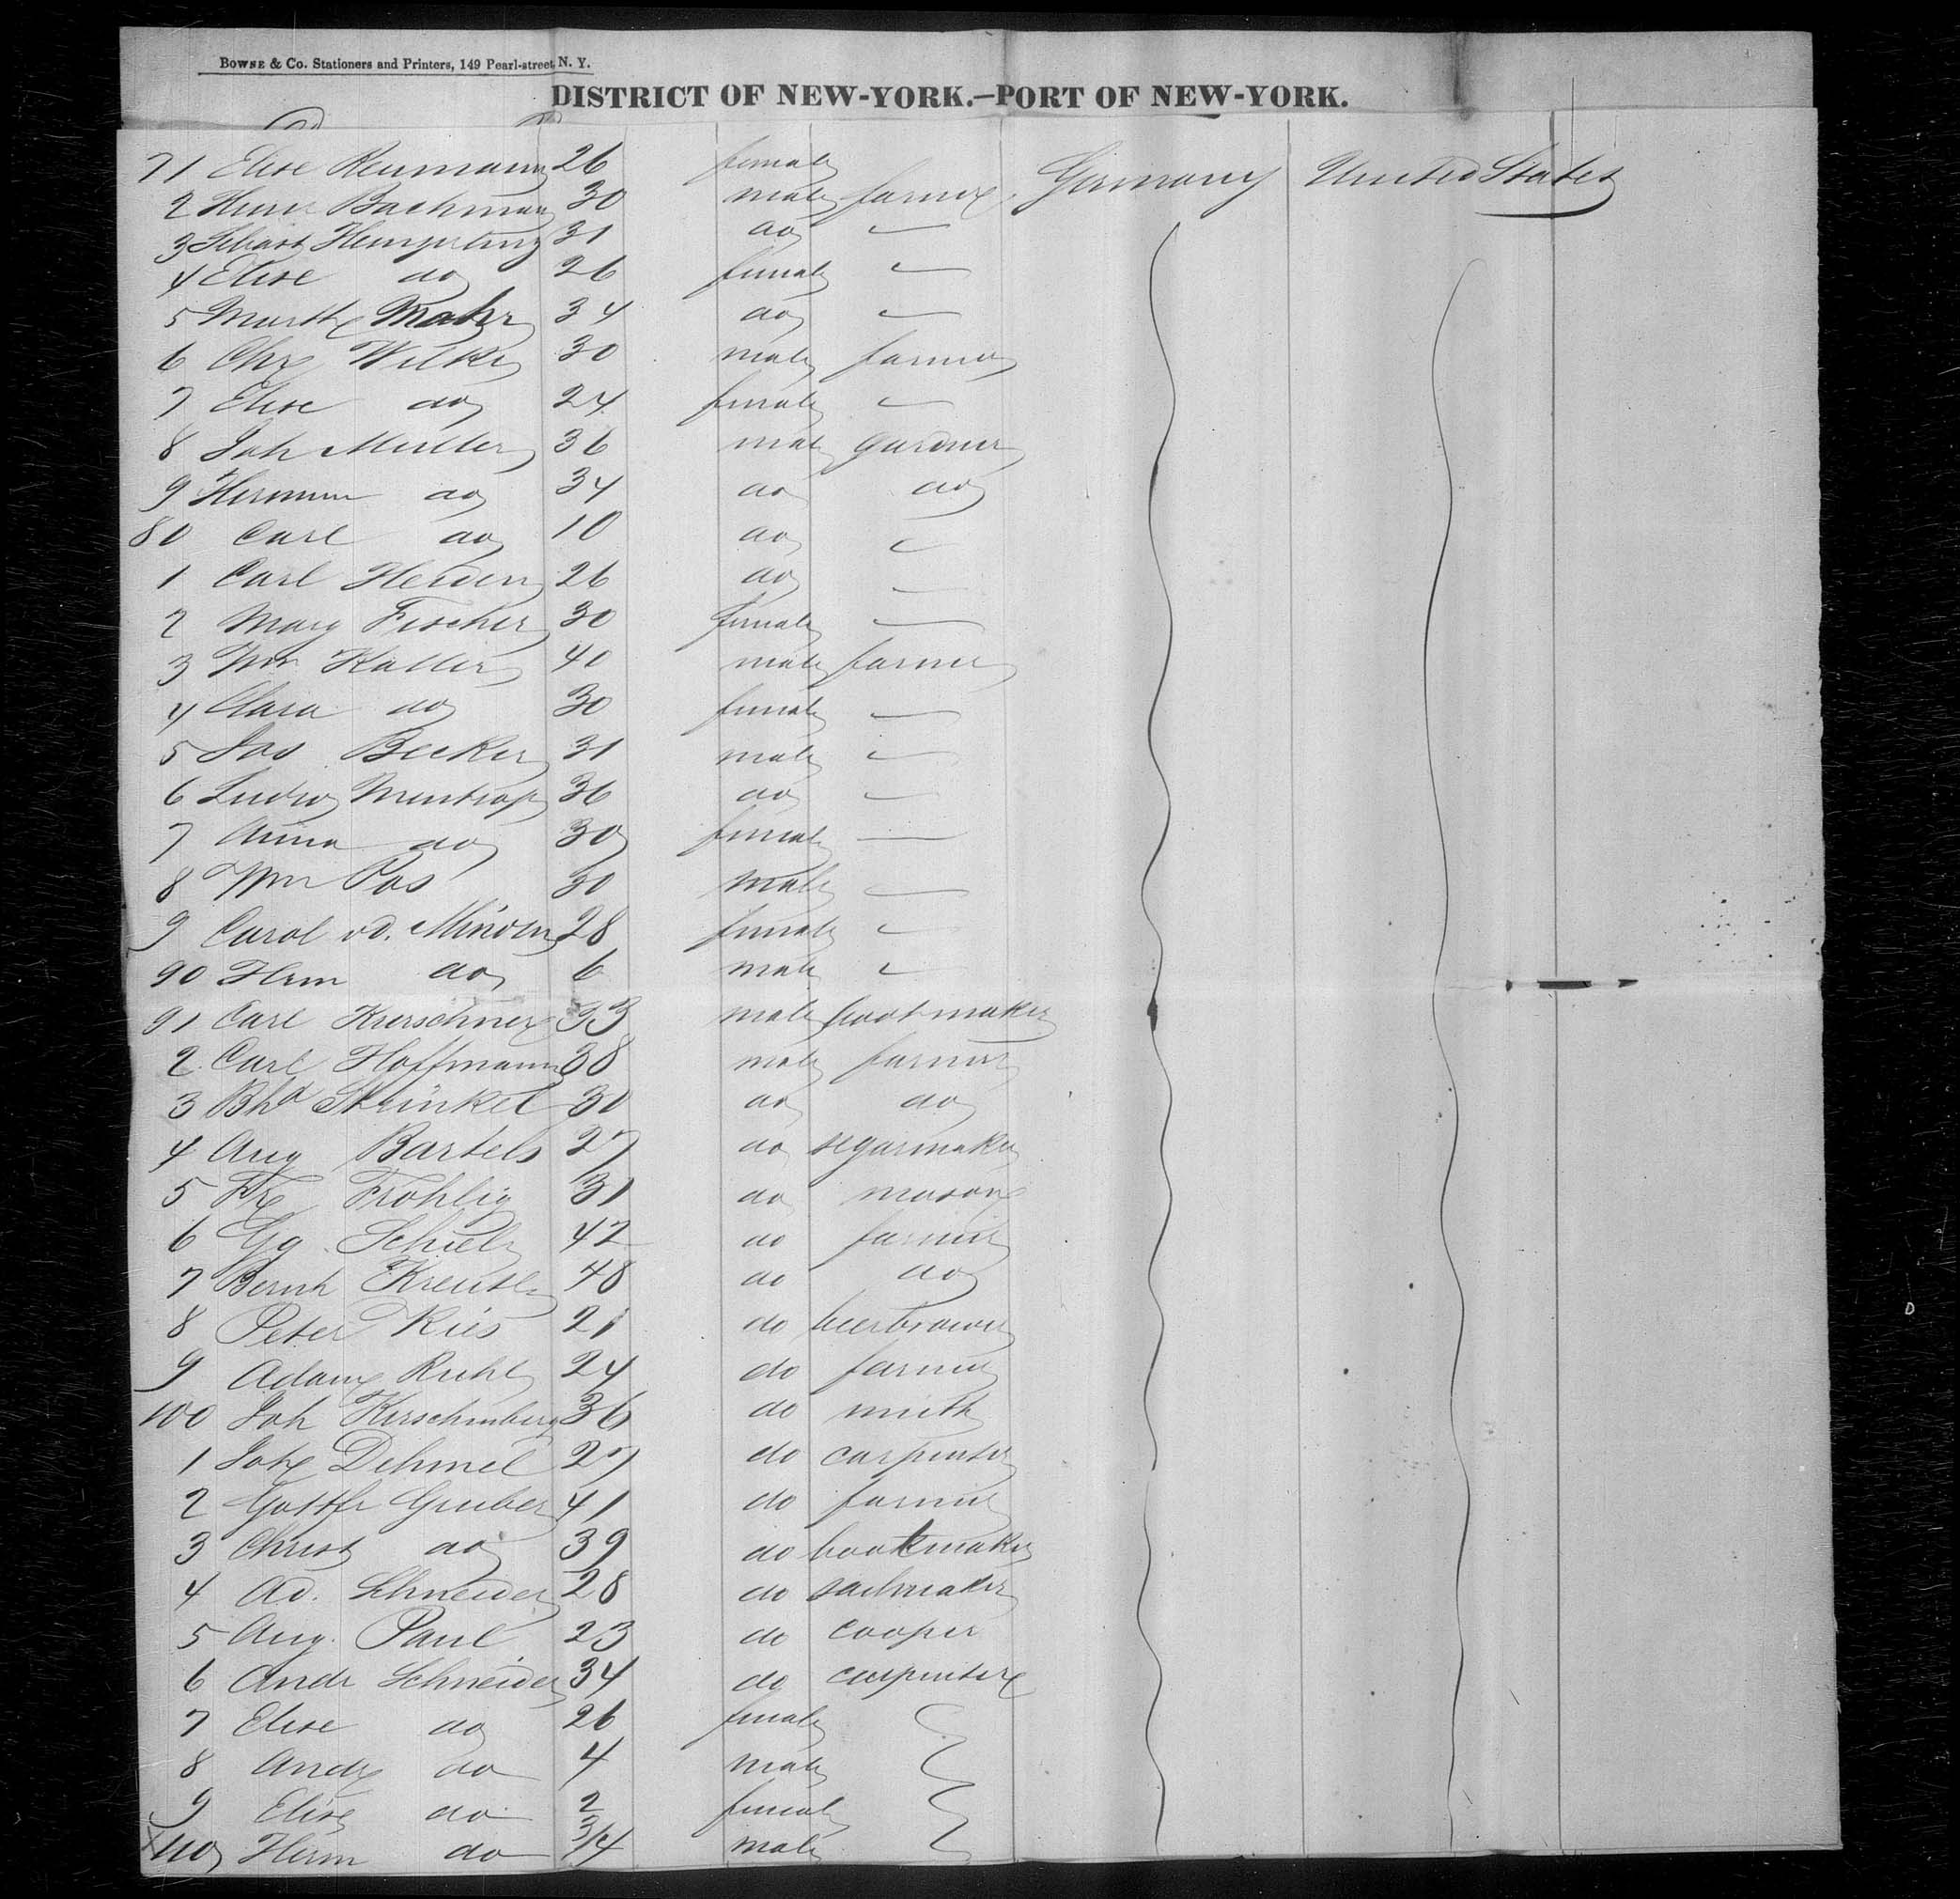 BOWNE & Co. Stationers and Printers, 149 Pearl-street, N. Y.
DISTRICT OF NEW-YORK.—PORT OF NEW-YORK.
71 Elise Reumann 26 female Germany United States
2 Bachmann 30 male farmer
3 Sebast 31 do —
4 Elise do 26 female —
5 Marth Mahr 34 do —
6 Chr Wilke 30 male farmer
7 Elise do 24 female —
8 Joh Muller 36 male gardner
9 Hermann do 34 do do
80 Carl do 10 do —
1 Carl Heiden 26 do —
2 Marg Fischer 30 female —
3 Wm Kaller 40 male farmer
4 Clara do 30 female —
5 Jos Becker 31 male —
6 Ludw Mentrop 36 do —
7 Anna do 30 female —
8 Wm Pos 30 male —
9 Carol vd. Minden 28 female —
90 Hrm do 6 male —
91 Carl Kurschner 33 male bootmaker
2 Carl Hoffmann 38 male farmer
3 Bhd Strinkel 30 do do
4 Aug Bartels 27 do segarmaker
5 Fr Frohlig 31 do mason
6 Gg Schiel 42 do farmer
7 Bernh 48 do do
8 Peter Ries 21 do beerbrower
9 Adam Ruhl 24 do farmer
100 Joh Kirschenberg 36 do smith
1 Joh Dehmel 27 do carpenter
2 Gottfr Gruber 41 do farmer
3 Christ do 39 do bootmaker
4 Ad. Schneider 28 do sailmaker
5 Aug. Paul 23 do cooper
6 Andr Schneider 34 do carpenter
7 Elise do 26 female
8 Andr do 4 male
9 Elise do 2 female
110 Herm do 3/4 male